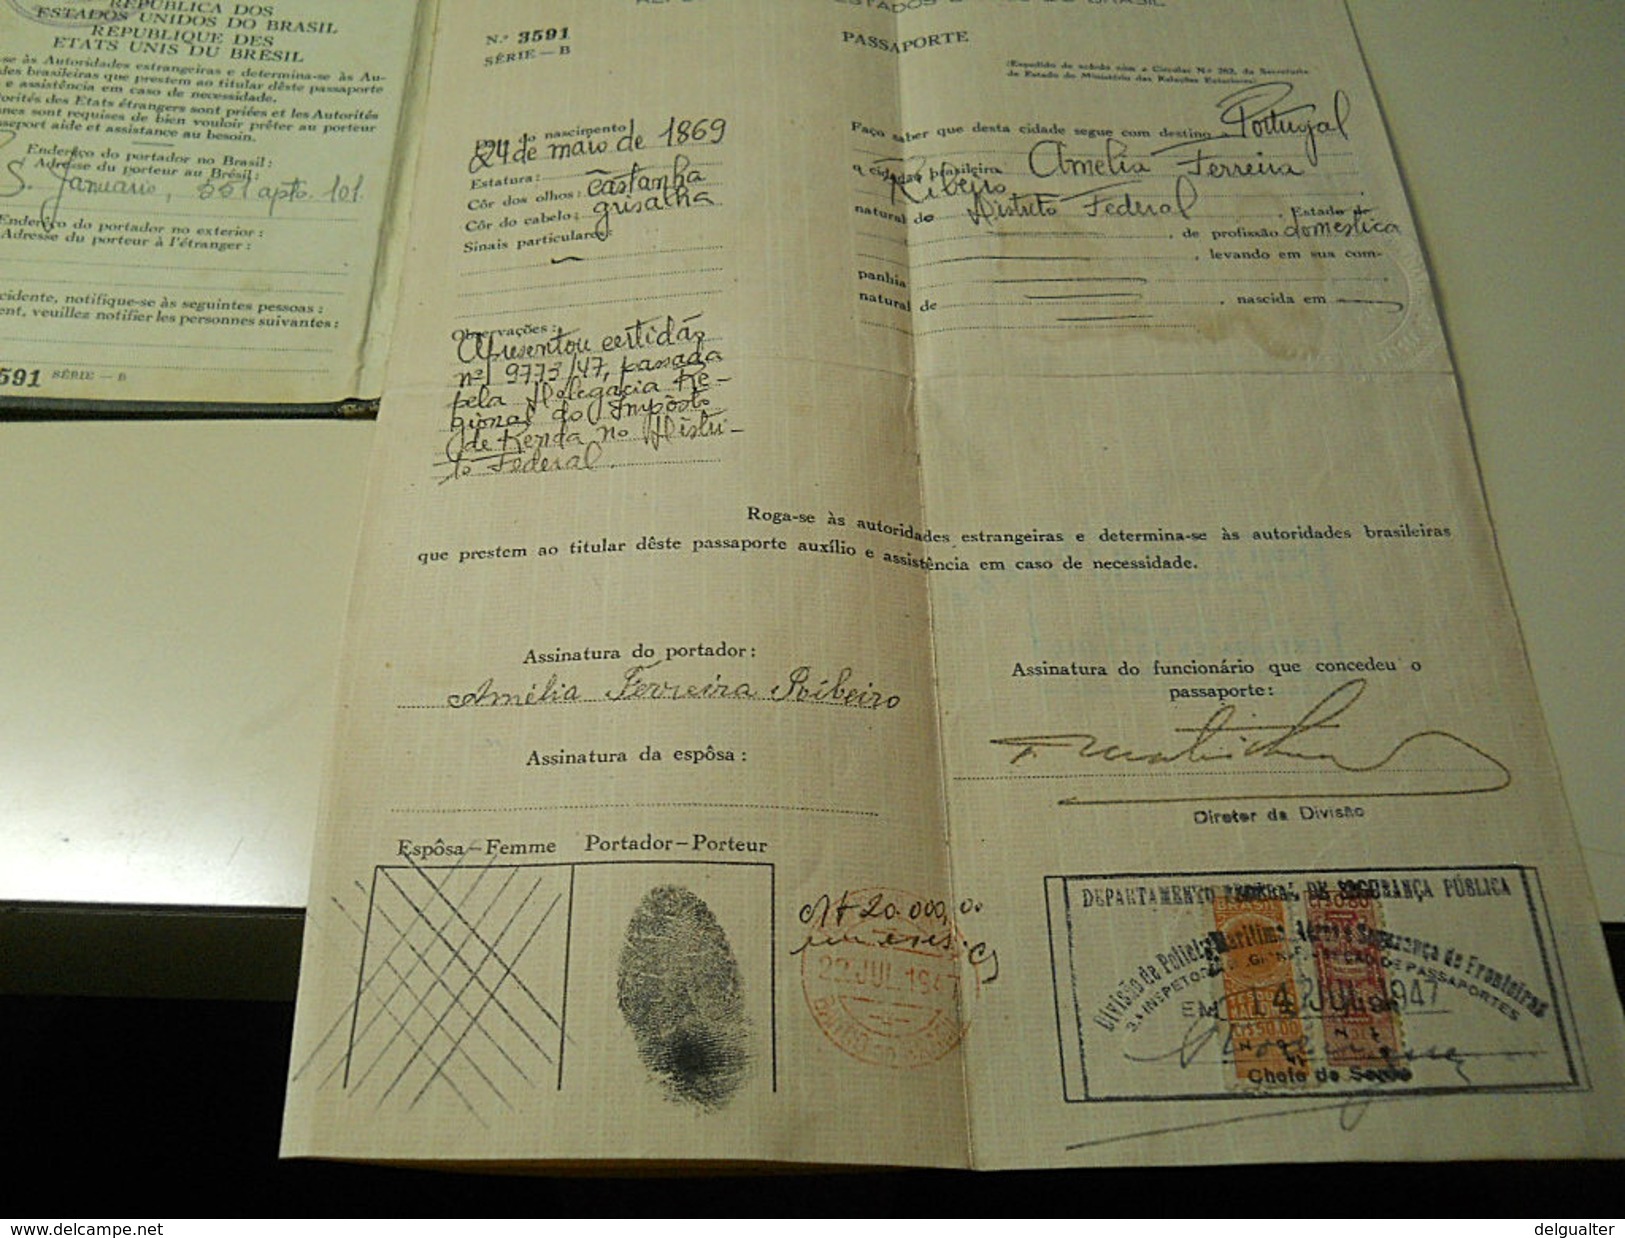 REPÚBLICA DOS
ESTADOS UNIDOS DO BRASIL
RÉPUBLIQUE DES
ETATS UNIS DU BRÉSIL
-se às Autoridades estrangeiras e determina-se às Au-
des brasileiras que prestem ao titular dêste passaporte
e assistência em caso de necessidade.
orités des Etats étrangers sont priées et les Autorités
nnes sont requises de bien vouloir prêter au porteur
sseport aide et assistance au besoin.
Enderêço do portador no Brasil:
Adresse du porteur au Brésil:
S. Januario, 551 apto. 101.
Enderêço do portador no exterior:
Adresse du porteur à l'étranger:
cidente, notifique-se às seguintes pessoas:
ent, veuillez notifier les personnes suivantes:
591 SÉRIE — B
ESTADOS DO BRASIL
N.º 3591
SÉRIE — B
do nascimento
24 de maio de 1869
Estatura:
Côr dos olhos: Castanha
Côr do cabelo: grisalha
Sinais particulares:
Observações:
Apresentou certidão
nº 9773/47, passada
pela Delegacia Re-
gional do Impôsto
de Renda no Distri-
to Federal.
PASSAPORTE
(Expedido de acôrdo com a Circular N.º 263, da Secretaria
de Estado do Ministério das Relações Exteriores)
Faço saber que desta cidade segue com destino Portugal
a cidadão brasileira Amelia Ferreira
Ribeiro
natural do Distrito Federal, Estado de
, de profissão doméstica
, levando em sua com-
panhia
natural de , nascida em
Roga-se às autoridades estrangeiras e determina-se às autoridades brasileiras
que prestem ao titular dêste passaporte auxílio e assistência em caso de necessidade.
Assinatura do portador:
Amélia Ferreira Ribeiro
Assinatura da espôsa:
Assinatura do funcionário que concedeu o
passaporte:
Diretor da Divisão
Espôsa—Femme Portador—Porteur
20.000,00
22 JUL 1947
BANCO DO BRASIL
DEPARTAMENTO FEDERAL DE SEGURANÇA PÚBLICA
Divisão de Polícia Marítima, Aérea e Segurança de Fronteiras
SEÇÃO DE PASSAPORTES
EM 14 JUL 1947
Chefe da Seção
www.delcampe.net
delgualter